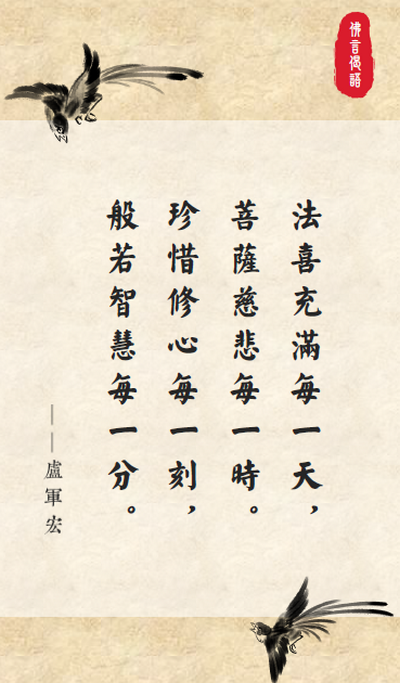 佛言偈語
法喜充滿每一天，
菩薩慈悲每一時。
珍惜修心每一刻，
般若智慧每一分。
——盧軍宏